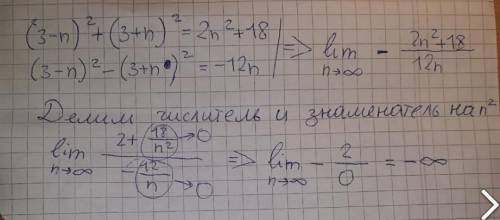 (3-n)² + (3+n)² = 2n² + 18
(3-n)² - (3+n)² = -12n
=> lim n→∞ - (2n² + 18)/(12n)
Делим числитель и знаменатель на n²
lim n→∞ (2 + 18/n² → 0)/(-12/n → 0) => lim n→∞ - 2/0 = -∞